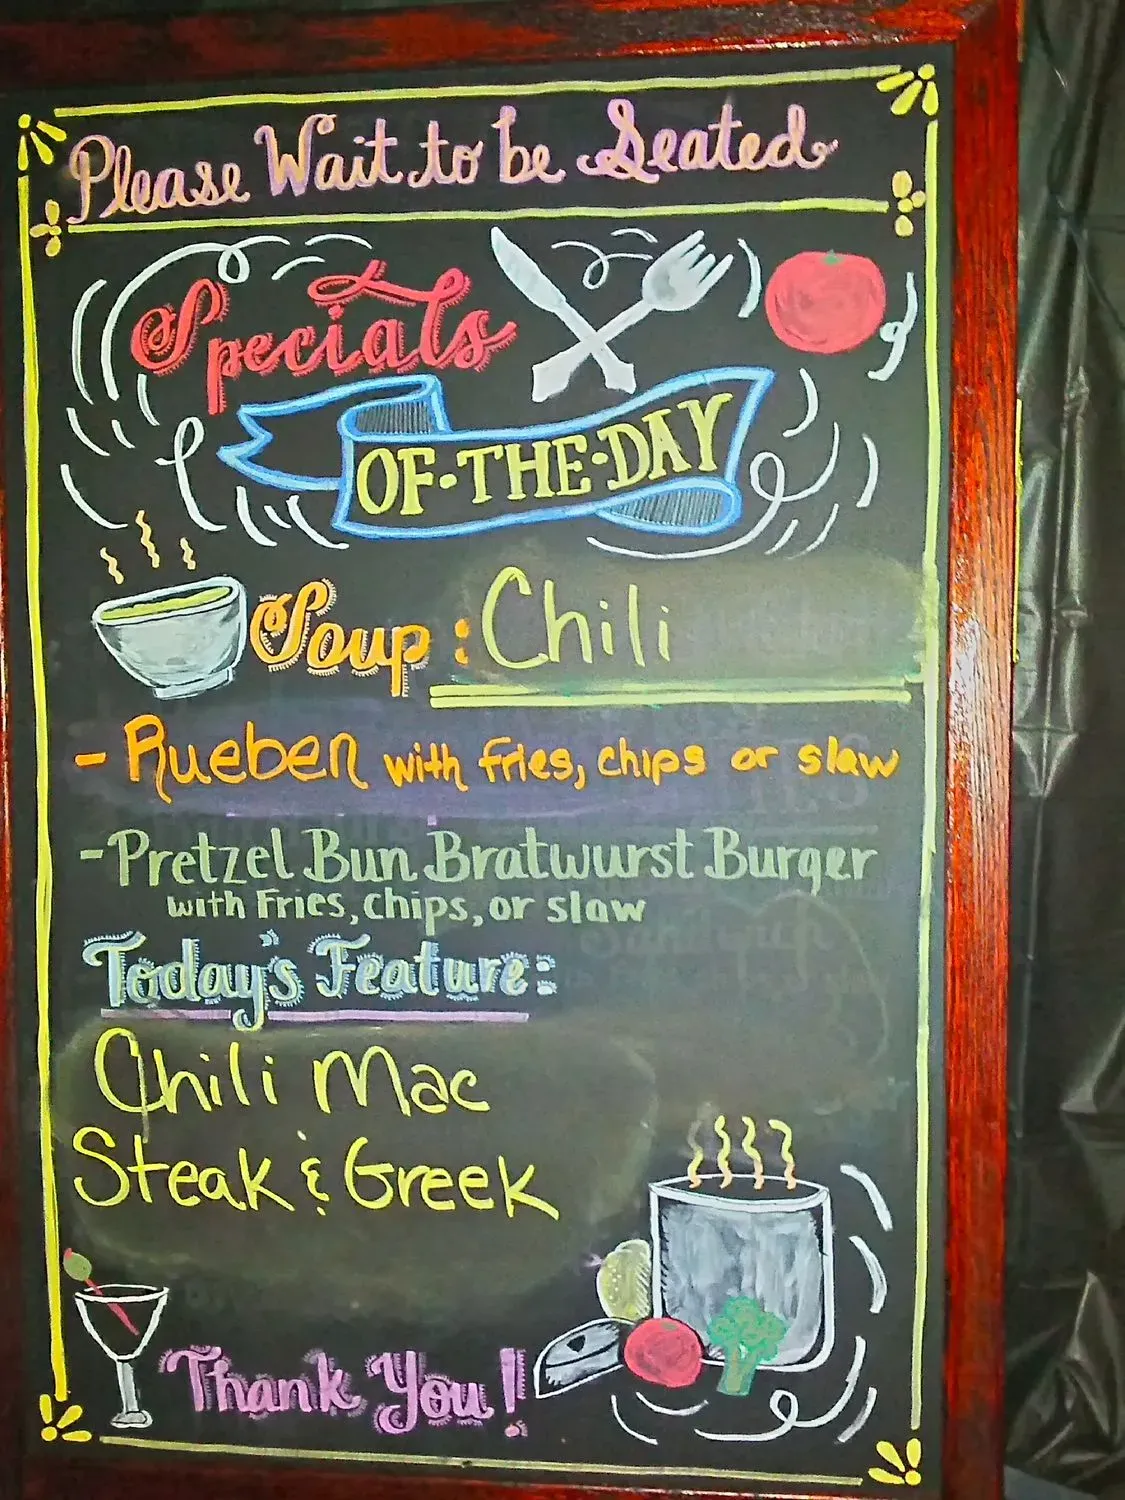 Please Wait to be Seated
Specials
OF·THE·DAY
Soup: Chili
- Rueben with fries, chips or slaw
- Pretzel Bun Bratwurst Burger
with Fries, chips, or slaw
Today's Feature:
Chili Mac
Steak & Greek
Thank You!